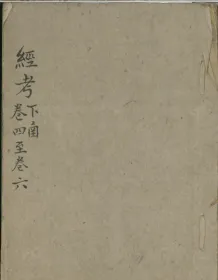 經考
下函
卷四至卷六